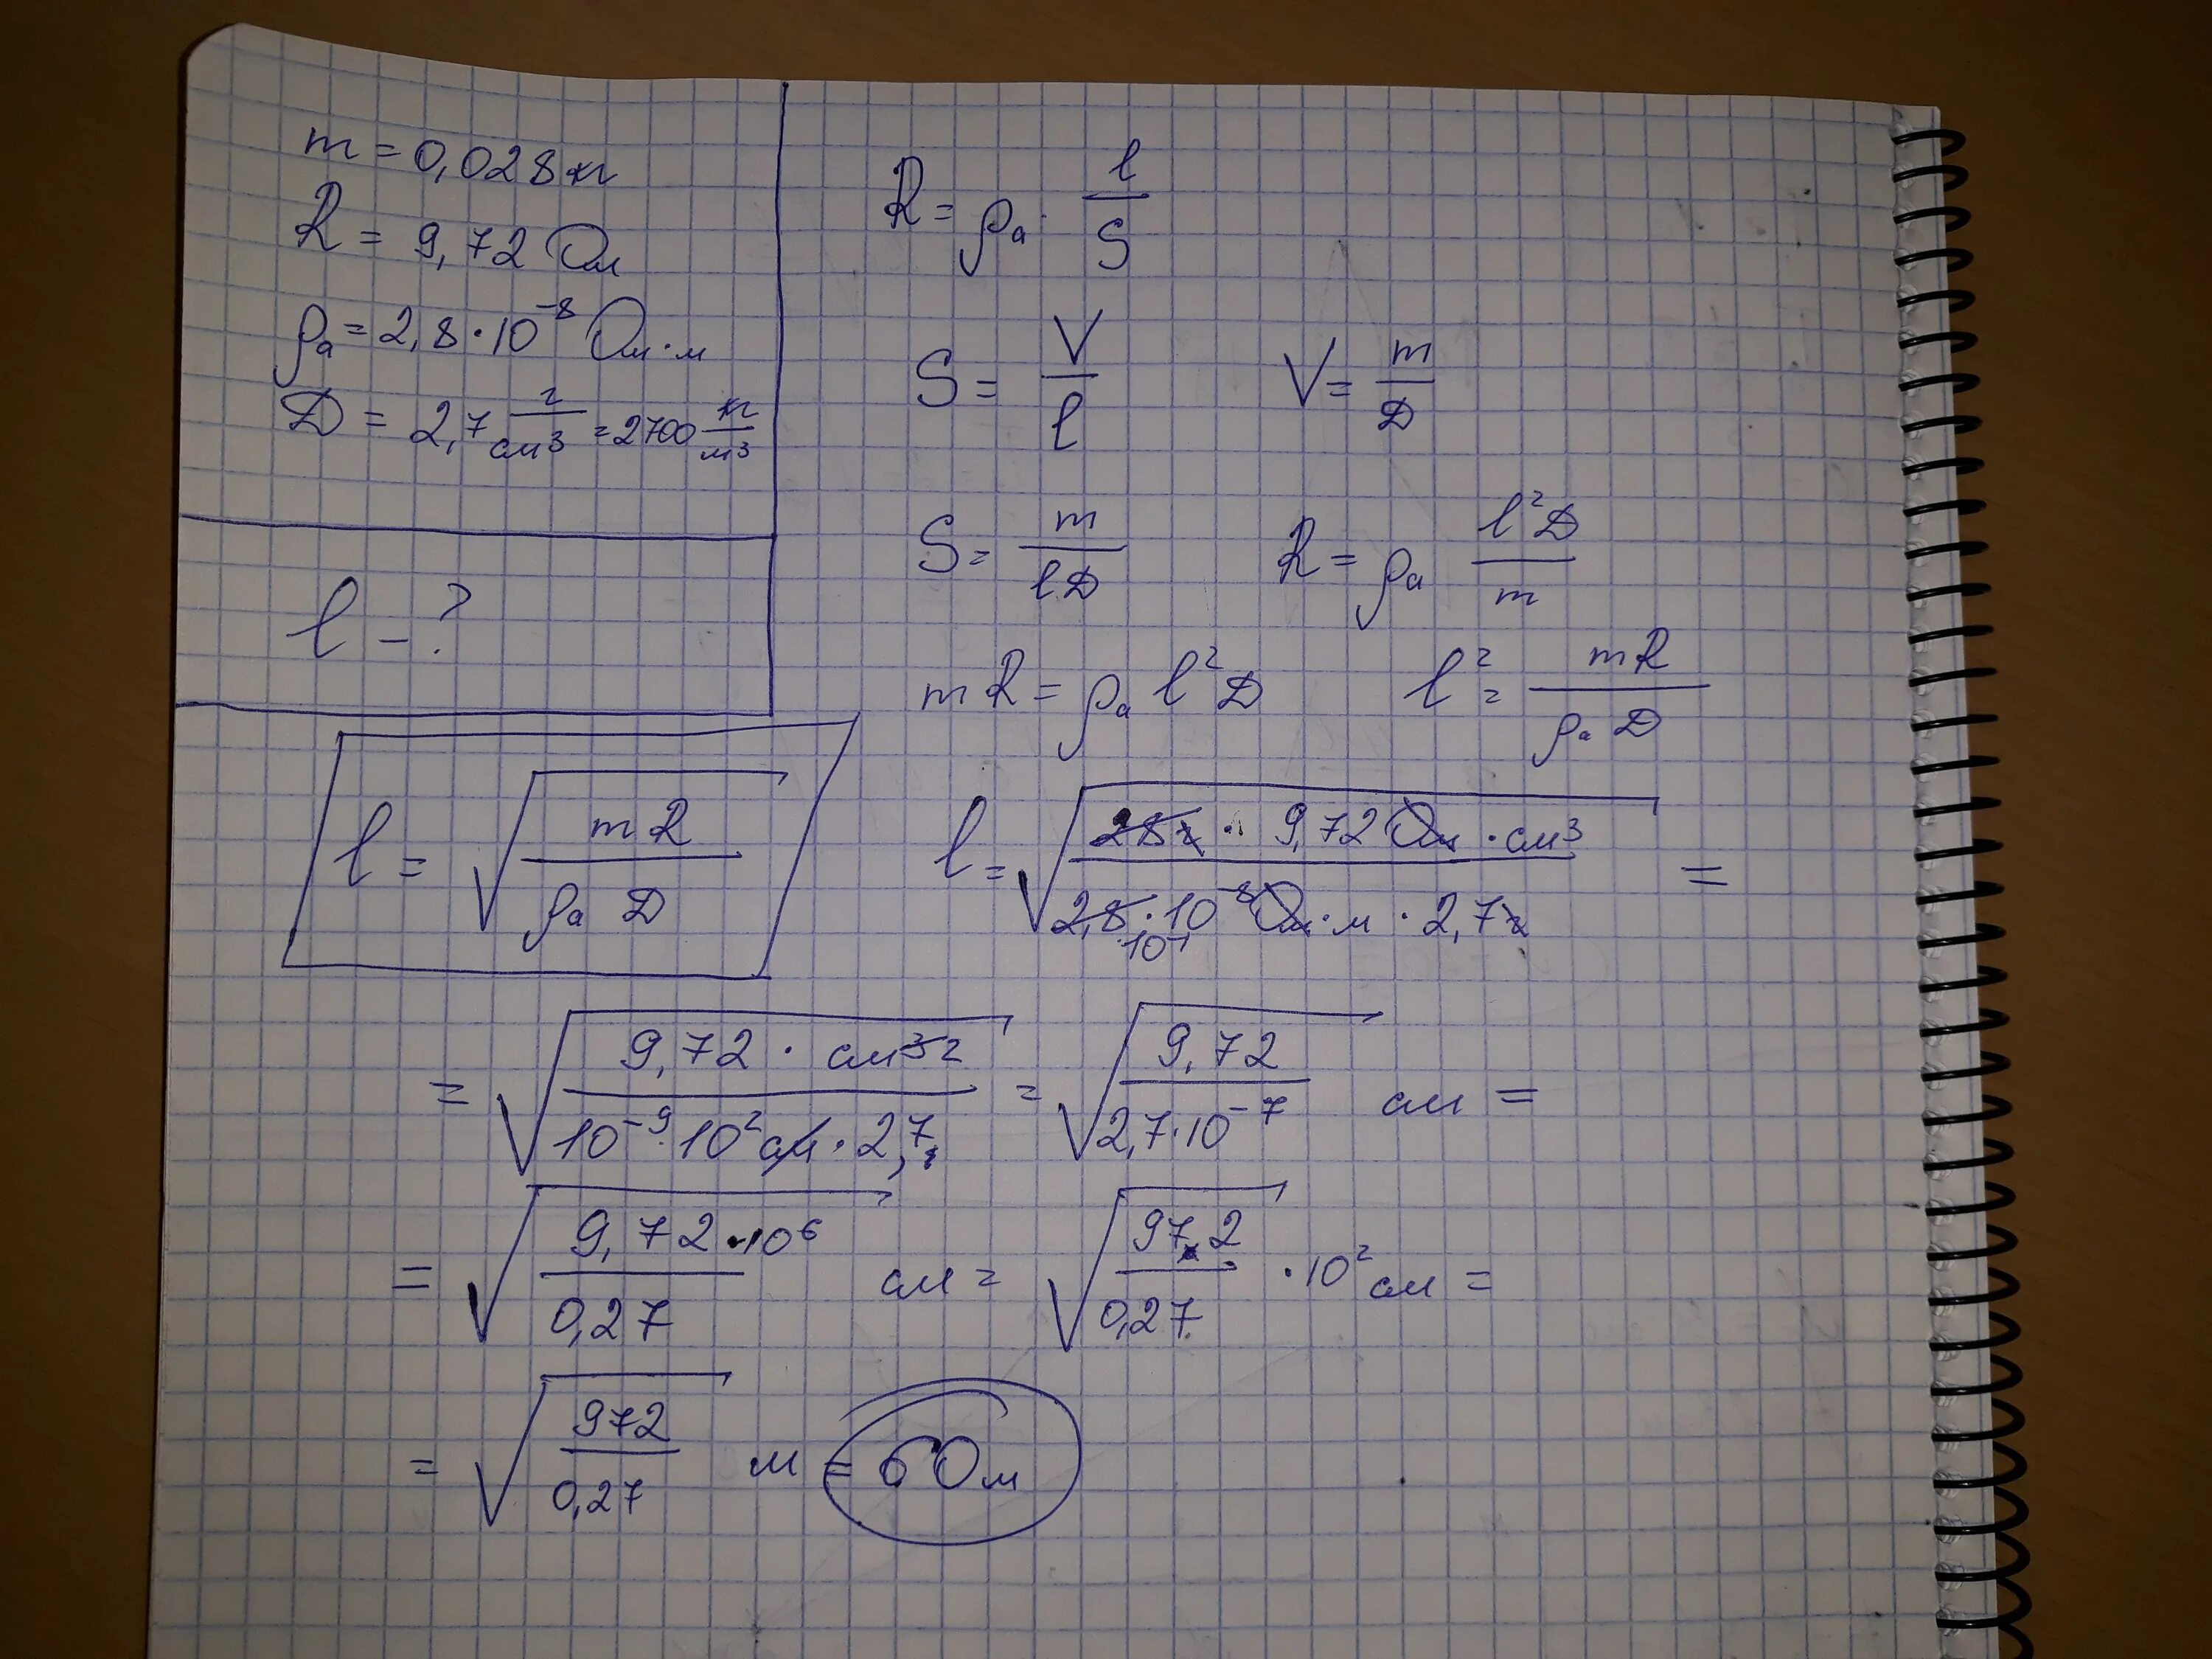 m = 0,028 кг
R = 9,72 Ом
ρa = 2,8 · 10⁻⁸ Ом · м
D = 2,7 г/см³ = 2700 кг/м³
l – ?
R = ρa · l/S
S = V/l   V = m/D
S = m/lD   R = ρa l²D/m
mR = ρa l² D   l² = mR/ρa D
l = √(mR/ρa D)   l = √(28 г · 9,72 Ом · см³/2,8 · 10⁻⁸ Ом · м · 2,7 г) =
10⁻¹
= √(9,72 · см³ ²/10⁻⁹ · 10² см · 2,7) = √(9,72/2,7 · 10⁻⁷) см =
= √(9,72 · 10⁶/0,27) см = √(97,2/0,27) · 10² см =
= √(972/0,27) м = 60 м